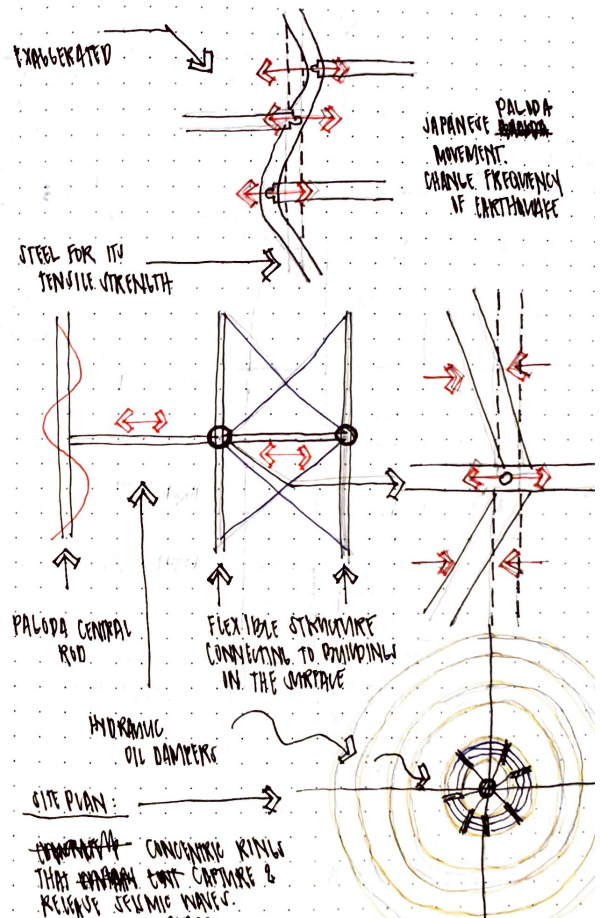 EXAGGERATED
JAPANESE PAGODA
MOVEMENT.
CHANGE FREQUENCY
OF EARTHQUAKE
STEEL FOR ITS
TENSILE STRENGTH
PAGODA CENTRAL
ROD
FLEXIBLE STRUCTURE
CONNECTING TO BUILDINGS
IN THE SURFACE
HYDRAULIC
OIL DAMPERS
SITE PLAN:
CONCENTRIC RINGS
THAT CAPTURE &
RELEASE SEISMIC WAVES.